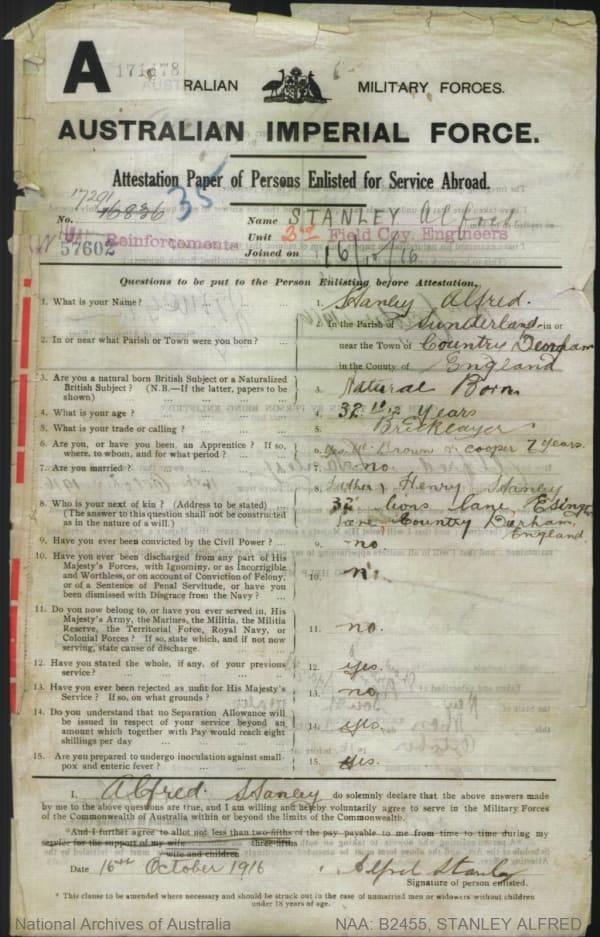 A 171478
AUSTRALIAN MILITARY FORCES.
AUSTRALIAN IMPERIAL FORCE.
Attestation Paper of Persons Enlisted for Service Abroad.
17291
No. 46836 35 Name STANLEY Alfred
57602 Reinforcements Unit 3rd Field Coy. Engineers
Joined on 16/10/16
Questions to be put to the Person Enlisting before Attestation.
1. What is your Name? ... ... 1. Stanley Alfred.
2. In or near what Parish or Town were you born? ... 2. In the Parish of Sunderland in or
near the Town of Country Durham
in the County of England
3. Are you a natural born British Subject or a Naturalized
British Subject? (N.B.—If the latter, papers to be
shown) ... ... 3. Natural Born
4. What is your age? ... ... 4. 32 years
5. What is your trade or calling? ... ... 5. Bricklayer
6. Are you, or have you been, an Apprentice? If so,
where, to whom, and for what period? ... ... 6. Brown & Cooper 7 years.
7. Are you married? ... ... 7. no.
8. Who is your next of kin? (Address to be stated) ...
(The answer to this question shall not be construed
as in the nature of a will.)
8. Father Henry Stanley
32 lions lane,
Lane, Country Durham,
England
9. Have you ever been convicted by the Civil Power? ... 9. no
10. Have you ever been discharged from any part of His
Majesty's Forces, with Ignominy, or as Incorrigible
and Worthless, or on account of Conviction of Felony,
or of a Sentence of Penal Servitude, or have you
been dismissed with Disgrace from the Navy? ... 10. no.
11. Do you now belong to, or have you ever served in, His
Majesty's Army, the Marines, the Militia, the Militia
Reserve, the Territorial Force, Royal Navy, or
Colonial Forces? If so, state which, and if not now
serving, state cause of discharge. 11. no.
12. Have you stated the whole, if any, of your previous
service? ... ... 12. yes.
13. Have you ever been rejected as unfit for His Majesty's
Service? If so, on what grounds? ... 13. no
14. Do you understand that no Separation Allowance will
be issued in respect of your service beyond an
amount which together with Pay would reach eight
shillings per day ... ... 14. yes.
15. Are you prepared to undergo inoculation against small-
pox and enteric fever? ... ... 15. yes.
I, Alfred Stanley do solemnly declare that the above answers made
by me to the above questions are true, and I am willing and hereby voluntarily agree to serve in the Military Forces
of the Commonwealth of Australia within or beyond the limits of the Commonwealth.
*And I further agree to allot not less than two-fifths of the pay payable to me from time to time during my
three-fifths
service for the support of my wife
wife and children
Date 16th October 1916 Alfred Stanley
Signature of person enlisted.
* This clause to be amended where necessary and should be struck out in the case of unmarried men or widowers without children
under 18 years of age.
National Archives of Australia NAA: B2455, STANLEY ALFRED